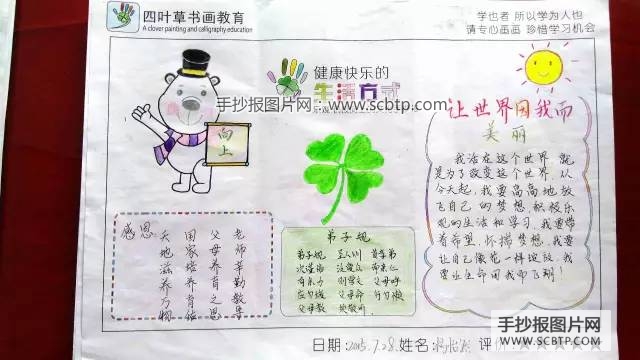 四叶草书画教育
A clover painting and calligraphy education
学也者 所以学为人也
请专心画画 珍惜学习机会
健康快乐的
生活方式
手抄报图片网:www.scbtp.com
向上
让世界因我而
美丽
我活在这个世界 就
是为了改变这个世界.从
今天起,我要高高地放
飞自己的梦想,积极乐
观的生活和学习.我要带
着希望,怀揣梦想,我要
让自己像花一样绽放,我
要让生命因我而飞翔!
感恩:
天地滋养万物
国家培养
父母养育之恩
老师辛勤教导
弟子规
弟子规 圣人训 首孝弟
次谨信 泛爱众 而亲仁
有余力 则学文 父母呼
应勿缓 父母命 行勿懒
父母教 须敬听
日期:2015.7.28.姓名: 评
手抄报图片网
WWW.SCBTP.COM